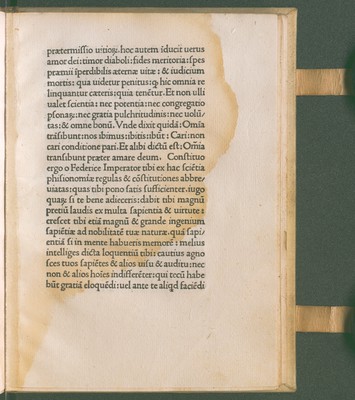 prætermissio uitioꝝ. hoc autem iducit uerus
amor dei: timor diaboli: fides meritoria: spes
præmii iperdibilis æternæ uitæ: & iudicium
mortis: qua uidetur penitus: ꝙ hic omnia re
linquantur cæteris: quia tenẽtur. Et non illi
ualet scientia: nec potentia: nec congregatio
psonaꝝ: nec gratia pulchritudinis: nec uolũ/
tas: & omne bonũ. Vnde dixit quidã: Omĩa
trãsibunt: nos ibimus: ibitis: ibũt: Cari: non
cari conditione pari. Et alibi dictũ est: Omĩa
transibunt præter amare deum. Constituo
ergo o Federice Imperator tibi ex hac sciẽtia
phisionomiæ regulas & cõstitutiones abbre/
uiatas: quas tibi pono satis sufficienter. iugo
quaꝝ si te bene adieceris: dabit tibi magnũ
pretiũ laudis ex multa sapientia & uirtute:
crescet tibi etiã magnũ & grande ingenium
sapiẽtiæ ad nobilitatẽ tuæ naturæ. quã sapi/
entiã si in mente habueris memorẽ: melius
intelliges dicta loquentiũ tibi: cautius agno
sces tuos sapiẽtes & alios uisu & auditu: nec
non & alios hoĩes indifferẽter: qui tecũ habe
bũt gratiã eloquẽdi: uel ante te aliqd faciẽdi